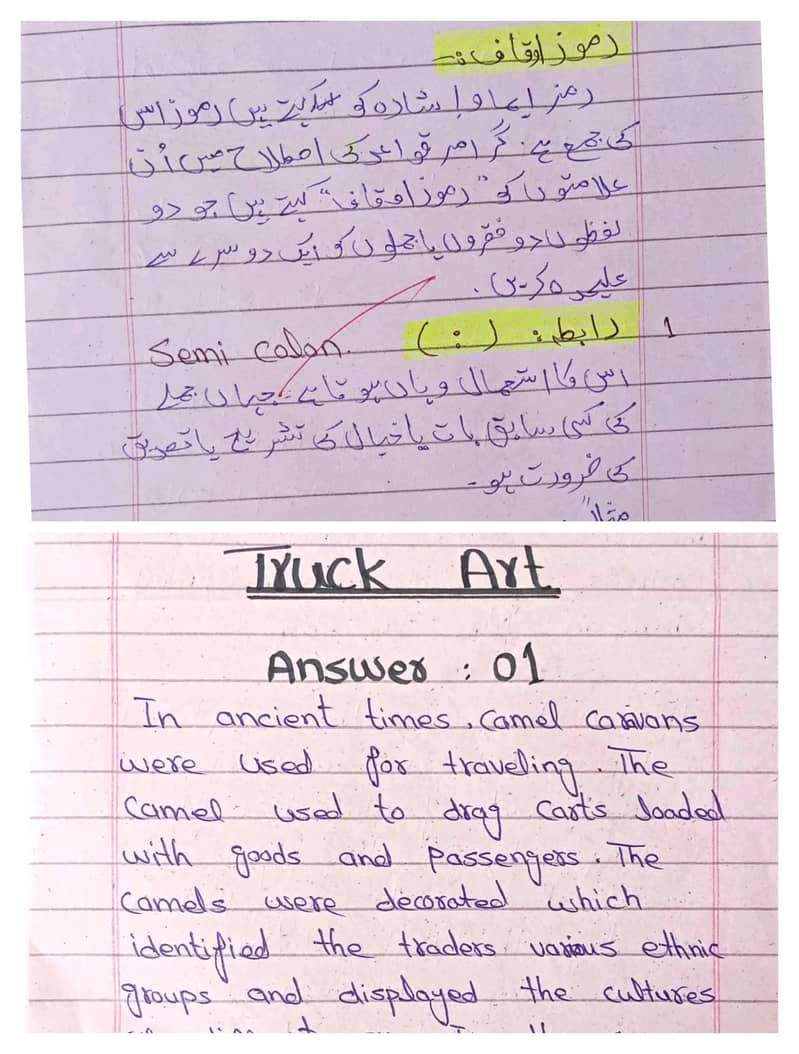 رموز اوقاف :-
رمز ایما و اشارہ کو کہتے ہیں رموز اس
کی جمع ہے. گرامر قواعد کی اصطلاح میں اُن
علامتوں کو "رموز اوقاف" کہتے ہیں جو دو
لفظوں دو فقروں یا جملوں کو ایک دوسرے سے
علیحدہ کریں.
1 رابطہ: ( : ) Semi Colon.
اس کا استعمال وہاں ہوتا ہے جہاں جملے
کی کسی سابق بات یا خیال کی تشریح یا تصدیق
کی ضرورت ہو-
مثلاً
Truck Art
Answer : 01
In ancient times, camel caravans
were used for traveling. The
camel used to drag carts loaded
with goods and passengers. The
camels were decorated which
identified the traders various ethnic
groups and displayed the cultures